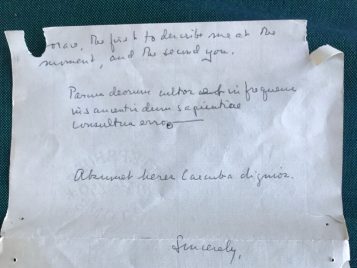 Horace, the first to describe me at the
moment, and the second you.
Parcus deorum cultor et infrequens
insanientis dum sapientiae
consultus erro
Absumet heres Caecuba dignior.
Sincerely,